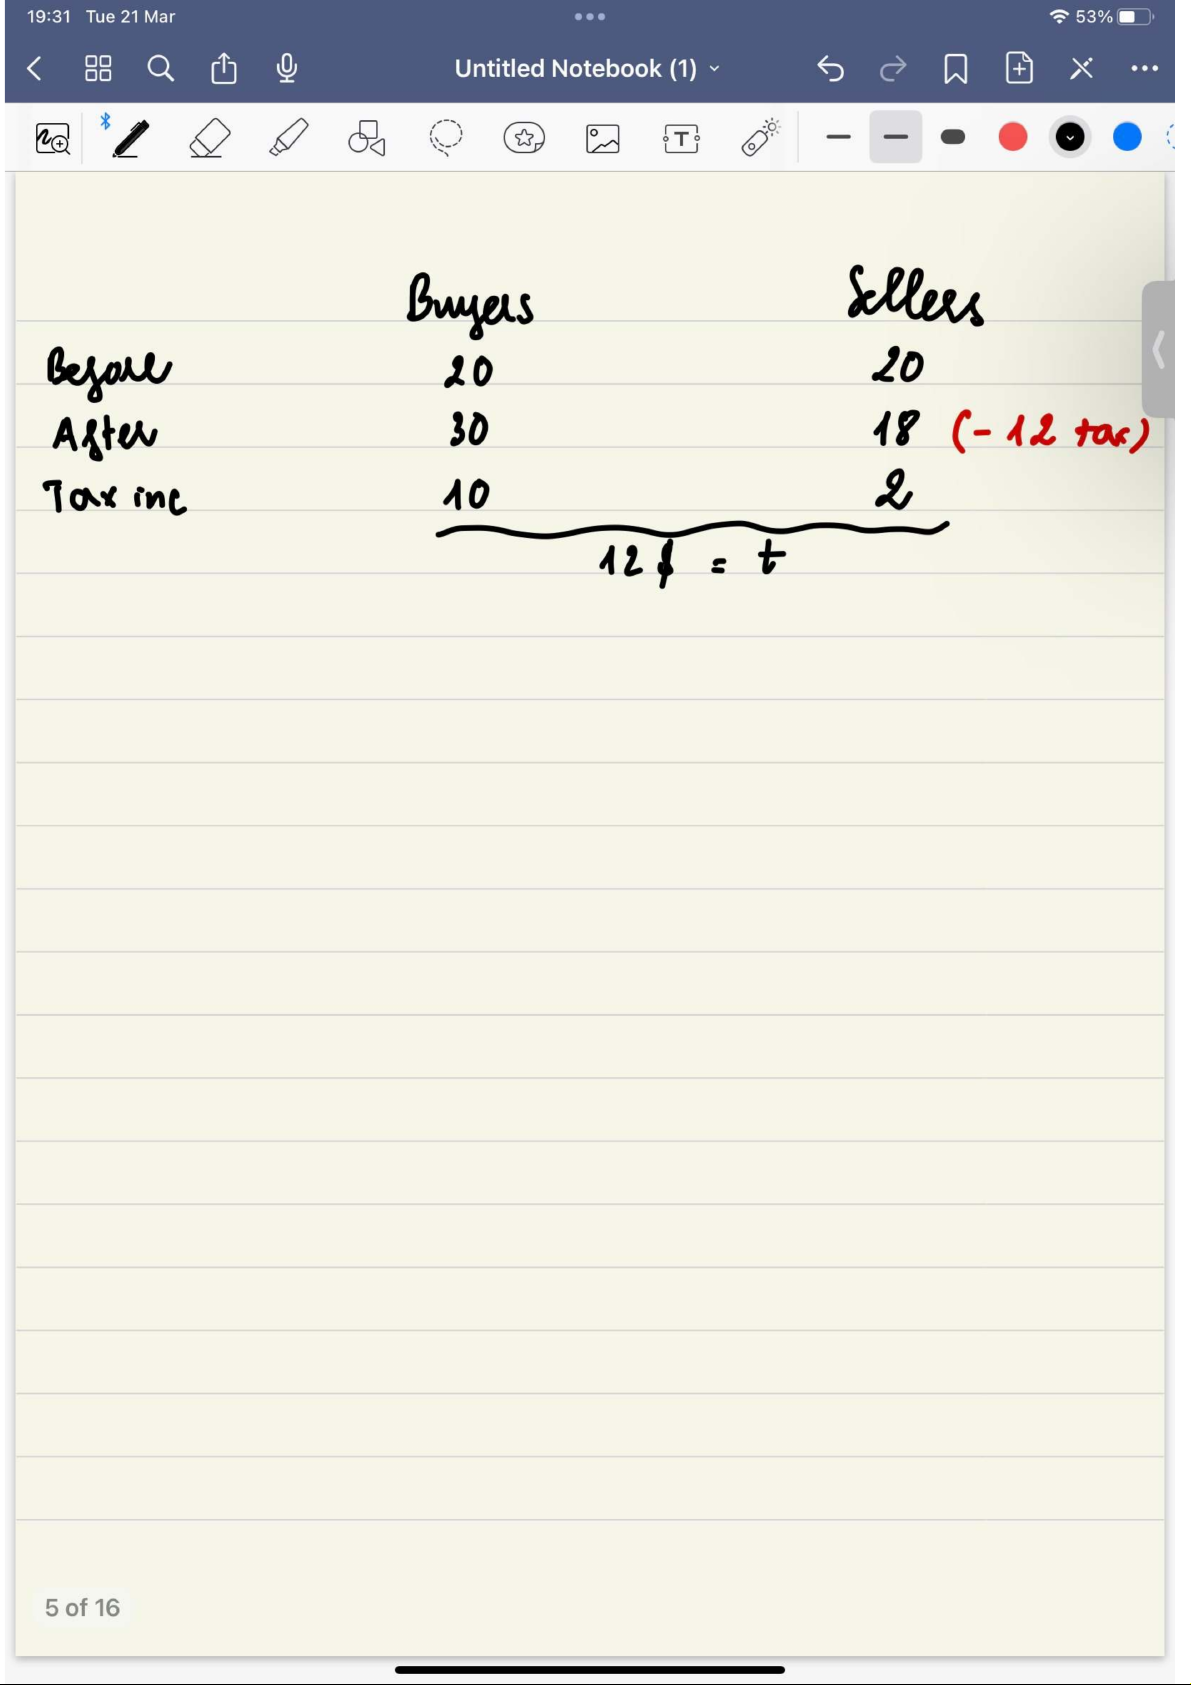 19:31 Tue 21 Mar 53%
Untitled Notebook (1)
T
Buyers Sellers
Before 20 20
After 30 18 (- 12 tax)
Tax inc 10 2
12 $ = t
5 of 16